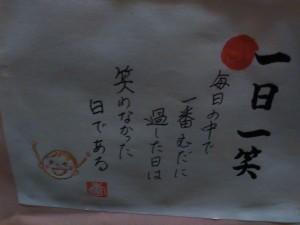 一日一笑
毎日の中で
一番むだに
過した日は
笑わなかった
日である